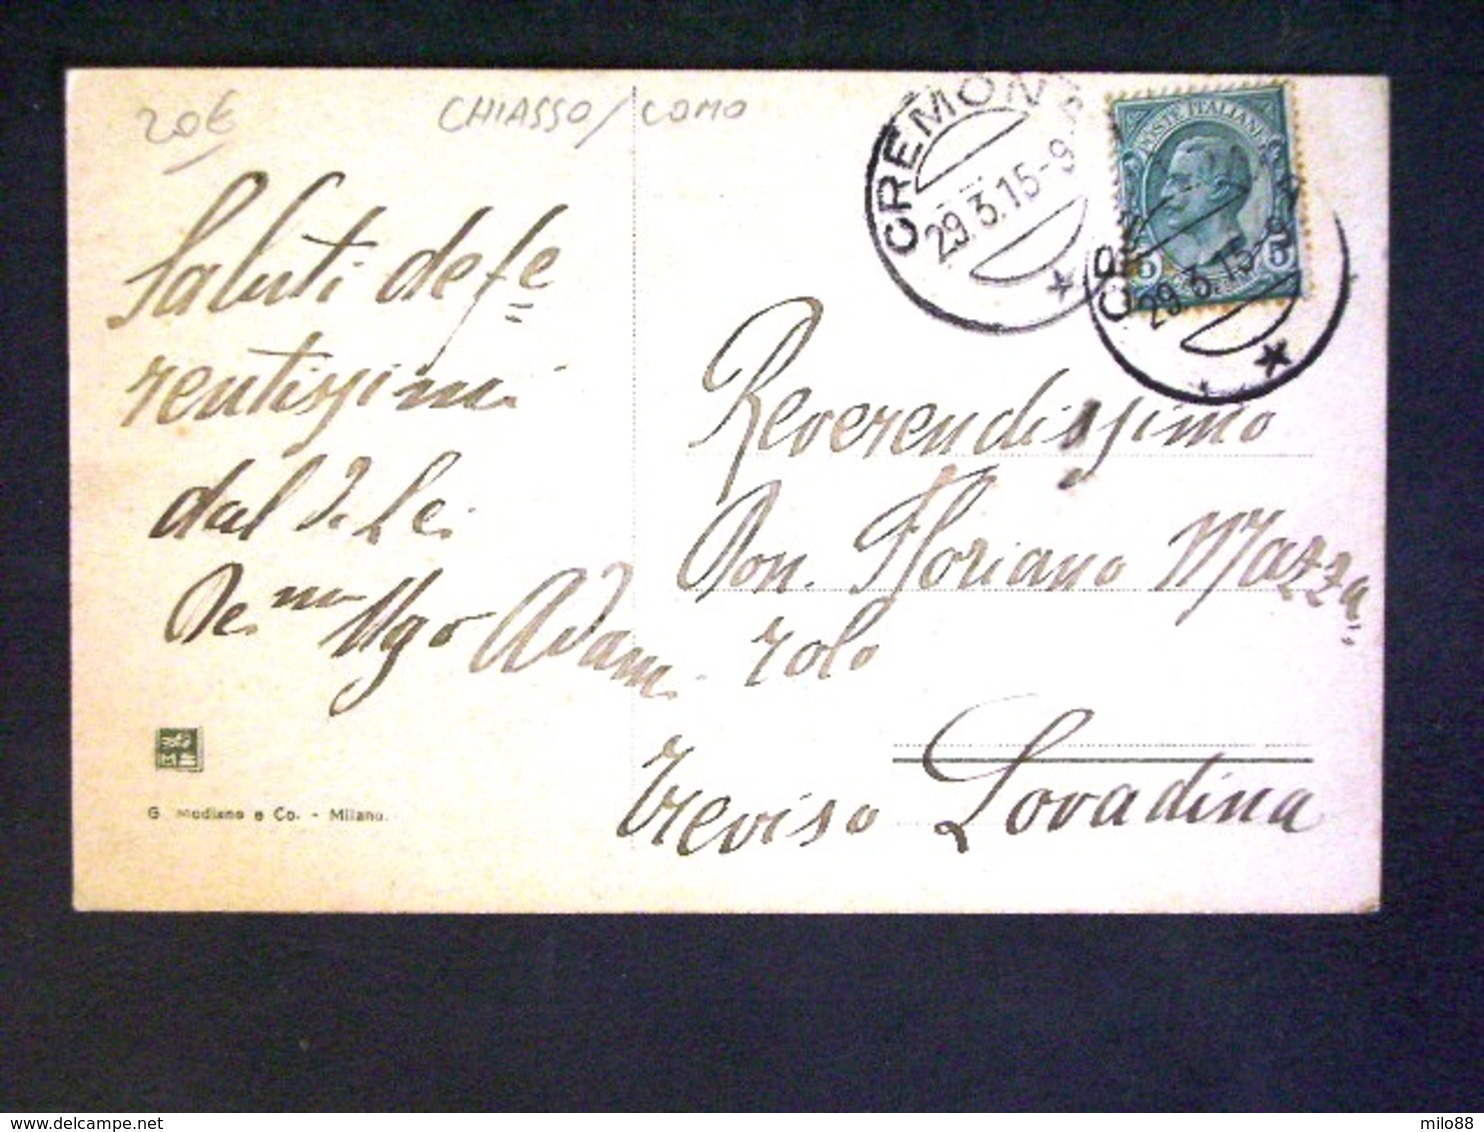 20€
CHIASSO/COMO
Saluti defe=
rentissimi
dal S. Lei
De.mo Ugo Adami
G. Modiano e Co. - Milano.
CREMONA
29.3.15-9
POSTE ITALIANE
5 5
29.3.15-9
Reverendissimo
Don. Floriano Mazza,,
rolo
Treviso Lovadina
milo88